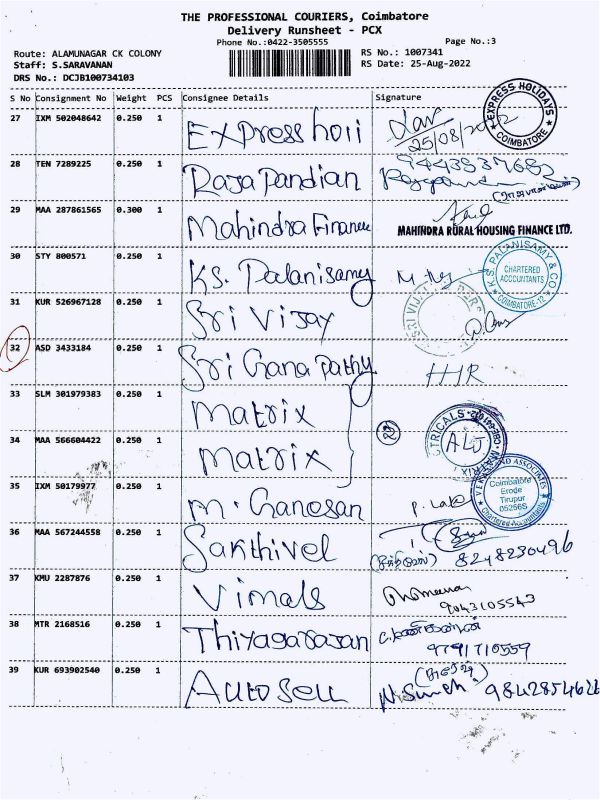 THE PROFESSIONAL COURIERS, Coimbatore
Delivery Runsheet - PCX
Phone No.:0422-3505555 Page No.:3
Route: ALAMUNAGAR CK COLONY RS No.: 1007341
Staff: S.SARAVANAN RS Date: 25-Aug-2022
DRS No.: DCJB100734103
S No Consignment No Weight PCS Consignee Details Signature
EXPRESS HOLIDAYS COIMBATORE
27 IXM 502048642 0.250 1 Express holi
25/08/2022
28 TEN 7289225 0.250 1 Raja Pandian
29 MAA 287861565 0.300 1 Mahindra Finance
MAHINDRA RURAL HOUSING FINANCE LTD.
30 STY 800571 0.250 1 KS. Palanisamy
K.S. PALANISAMY & CO
CHARTERED
ACCOUNTANTS
COIMBATORE-12
31 KUR 526967128 0.250 1 Sri Vijay
SRI VIJAY
32 ASD 3433184 0.250 1 Sri Ganapathy
33 SLM 301979383 0.250 1 Matrix
34 MAA 566604422 0.250 1 Matrix
35 IXM 50179977 0.250 1 M. Ganesan
AND ASSOCIATES
Coimbatore
Erode
Tirupur
05256S
Chartered Accountants
36 MAA 567244558 0.250 1 Sakthivel
8248230496
37 KMU 2287876 0.250 1 Vimals
9043105543
38 MTR 2168516 0.250 1 Thiyagarasan
9791710559
39 KUR 693902540 0.250 1 Auto Sell
N. Suresh 9842854626